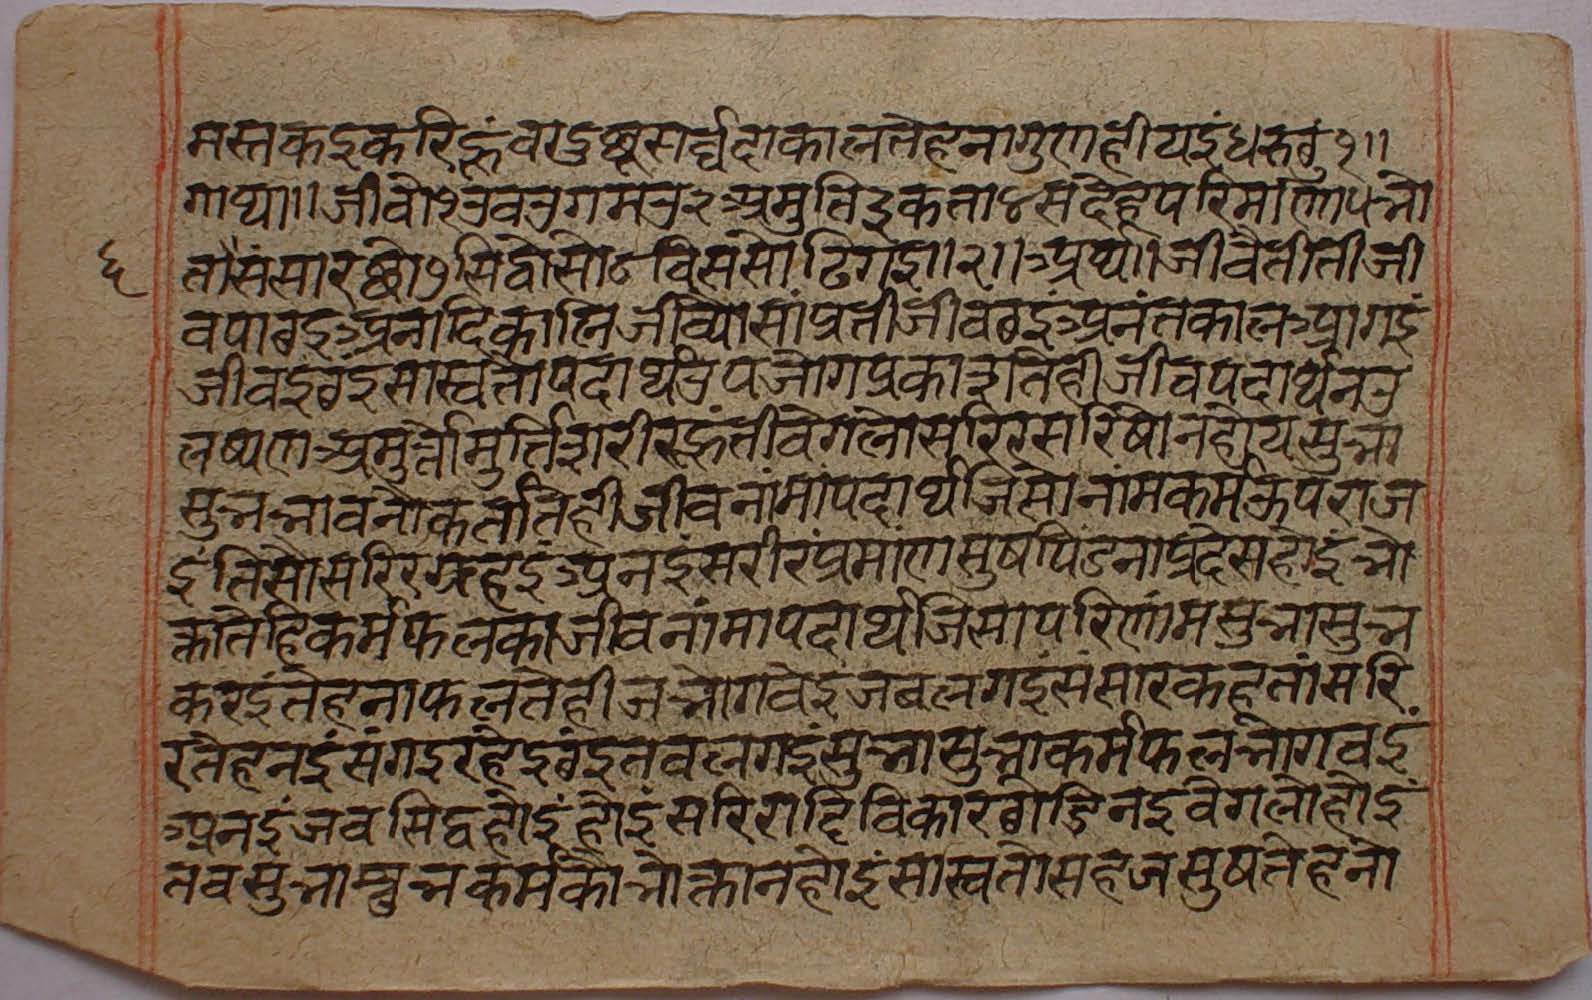 मस्तकइ करि हुं वांदुं छुं सर्व्वदा काल तेहना गुण हीयइं धरुं छुं १॥
गाथा॥ जीवो १ उवउगमउ २ अमुति ३ कता ४ सदेहपरिमाण ५ भो
ता ६ संसारछो ७ सिद्धो सो ८ विससोढगइ॥२॥ अर्थ॥ जीवैतीती जी
व पाछइ अनादि कालि जीव्यो सांप्रती जीव छइ अनंतकाल आगइं
जीवइं छइं सास्वतो पदार्थ उपजोग प्रकाश तिही जीव पदार्थनउ
लष्यण अमुर्त्तो मुर्त्ति शरीर हुंती वेगलो सरिर सरिषो न होय सुभा
सुभ भावनो कर्ता तिही जीव नांमां पदार्थ जिसो नांमकर्म रूप राज
इं तिसो सरिर ग्रहइ अनइं सरीर प्रमांण सुष पिंडना प्रदेस होइं भो
क्ता तेहि कर्मफलका जीव नांमा पदार्थ जिसा परिणांम सुभासुभ
करइं तेहना फल तेही ज भोगवेइं जब लगइं संसार कहतां सरि
र तेहनइं संगइ रहइ छइ तब लगइं सुभासुभ कर्मफल भोगवइं
अनइं जव सिद्ध होइं होइं सरिरादि विकार छोडिनइ वेगलो होइं
तव सुभासुभ कर्मको भोक्ता न होइं सास्वतो सहज सुष तेहनो
६